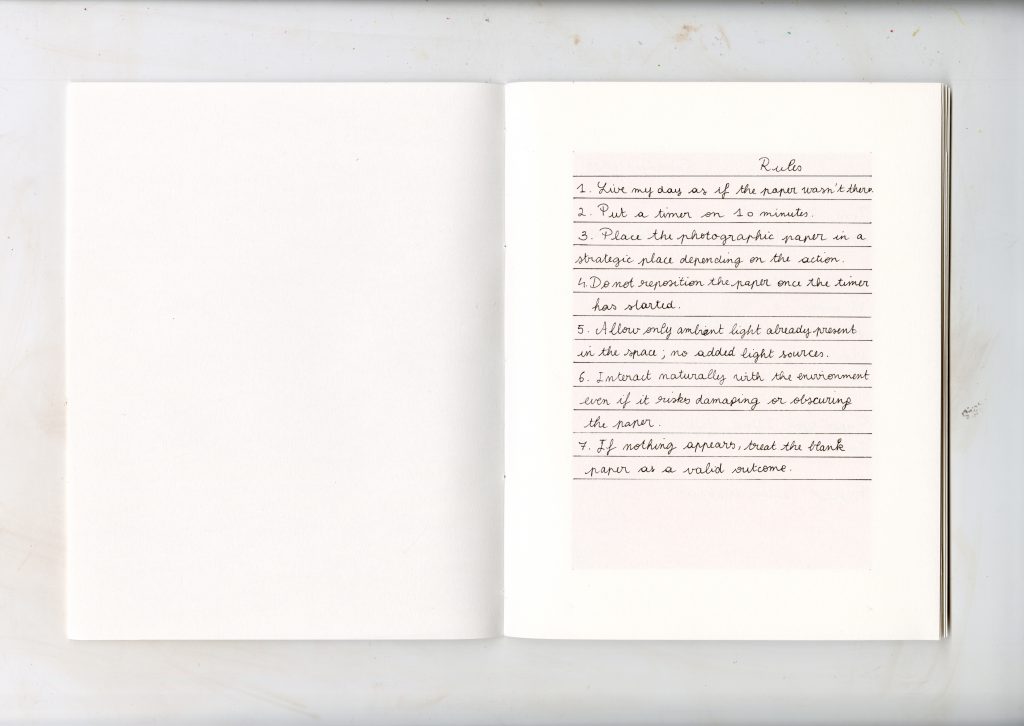 Rules
1. Live my day as if the paper wasn't there
2. Put a timer on 10 minutes.
3. Place the photographic paper in a
strategic place depending on the action.
4. Do not reposition the paper once the timer
has started.
5. Allow only ambient light already present
in the space; no added light sources.
6. Interact naturally with the environment
even if it risks damaging or obscuring
the paper.
7. If nothing appears, treat the blank
paper as a valid outcome.